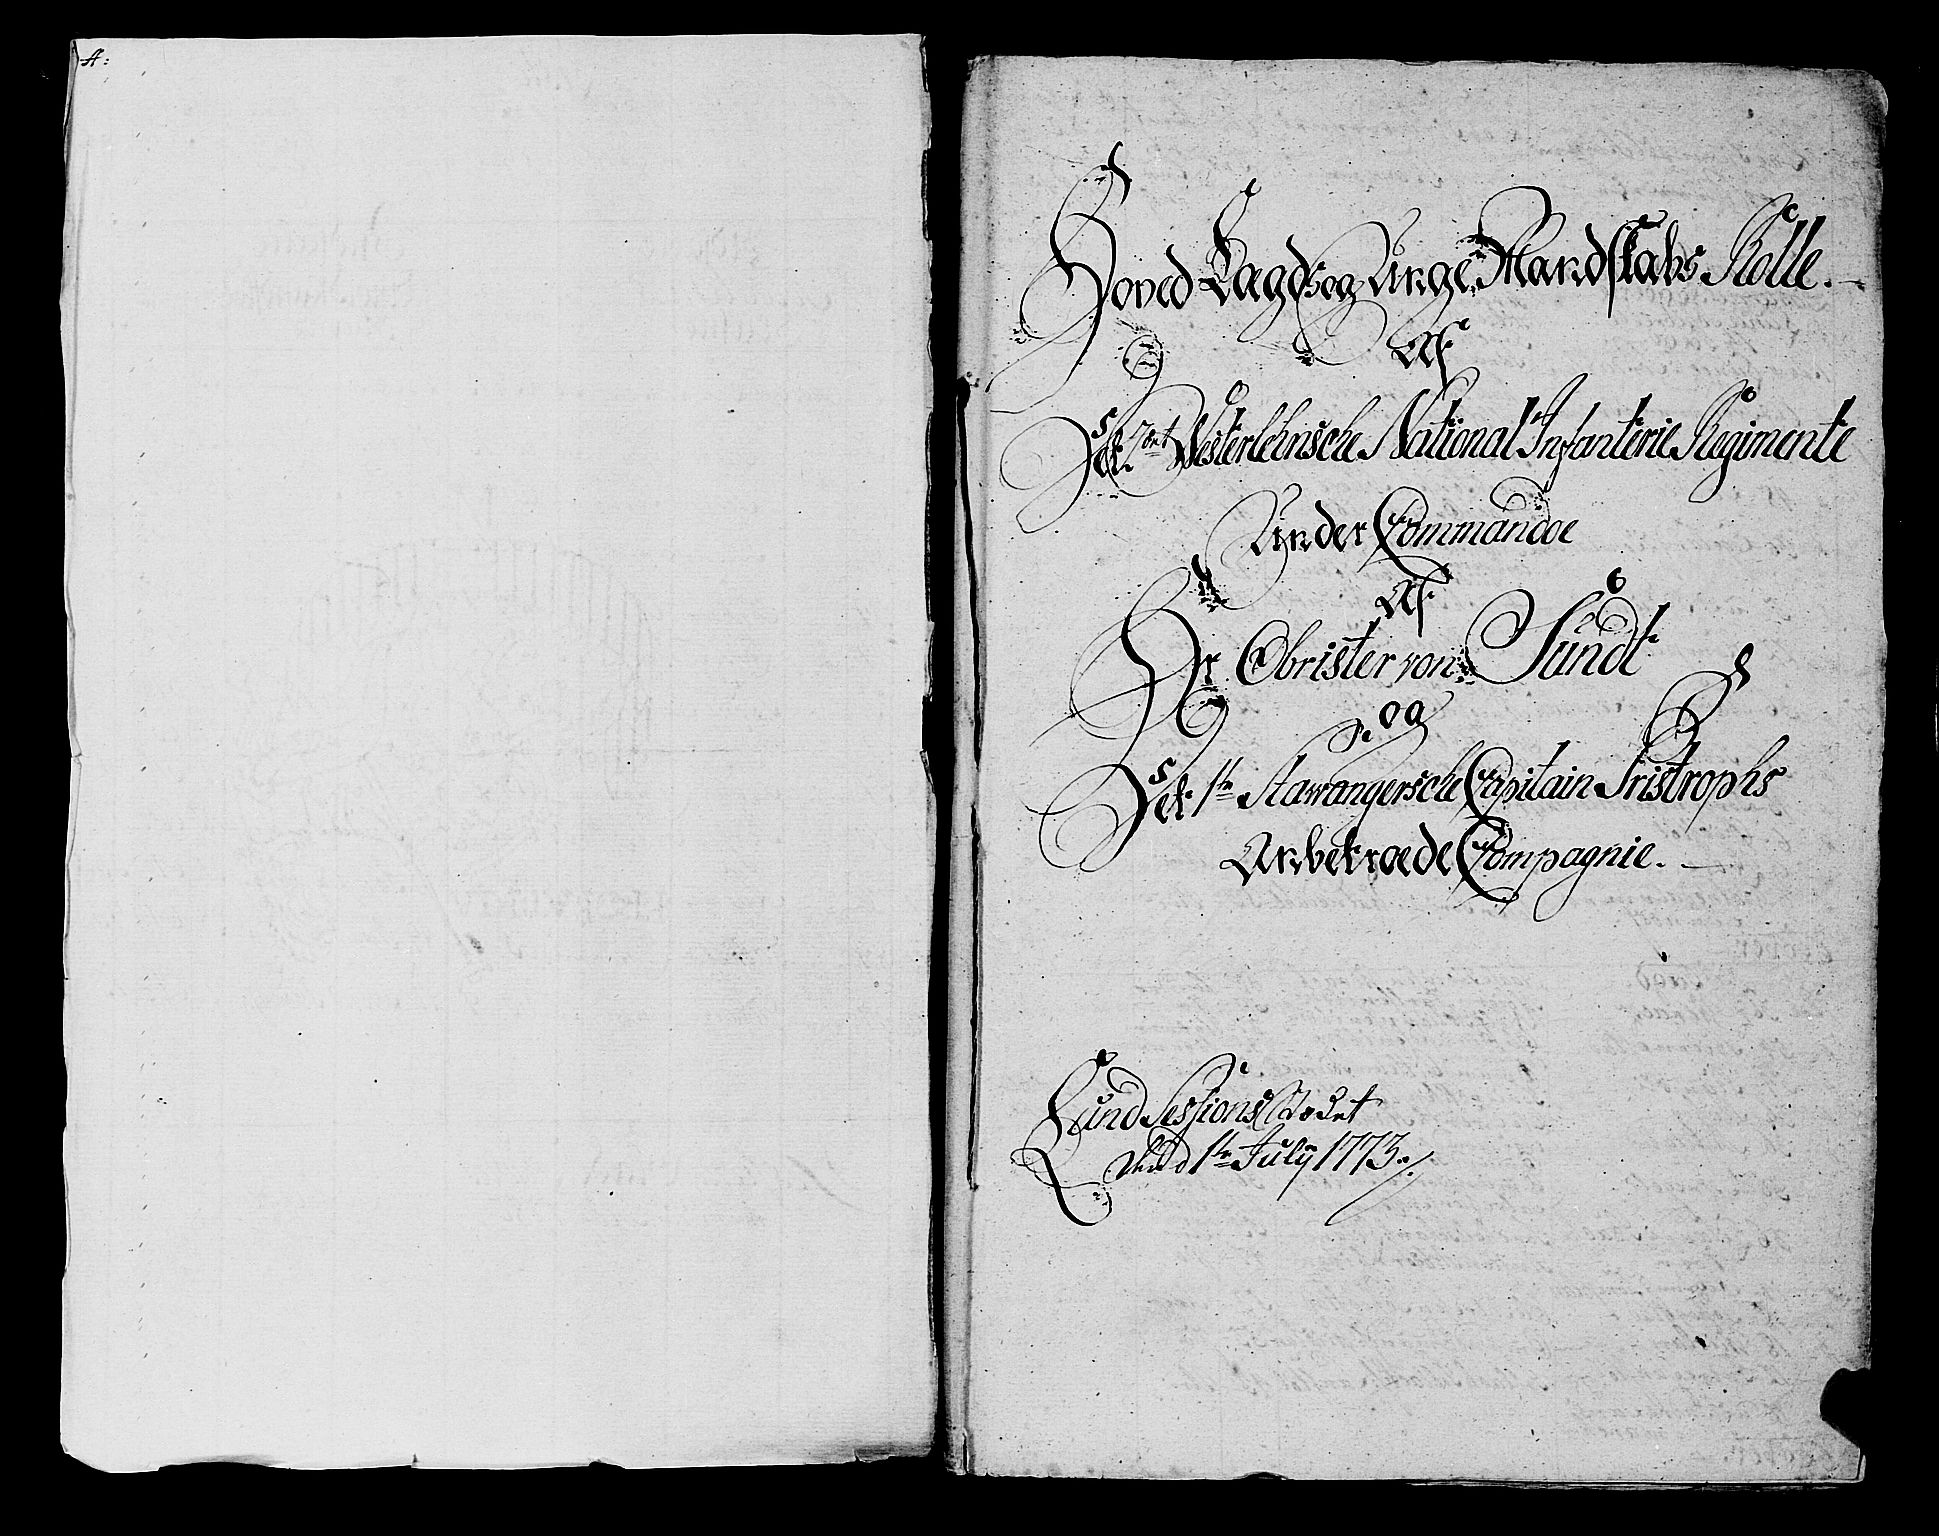 A:
Hoved Lægds og Unge Mandskabs Rolle.
Af
Det 2det Westerlehnsche National Infanterie Regimente
Under Commandoe
Af
Hr Obrister von Sundt
og
Det 1te Stawangersche Capitain Tristrophs
Anbetroede Compagnie.
Lund Sessions Stædet
dend 1te July 1773.